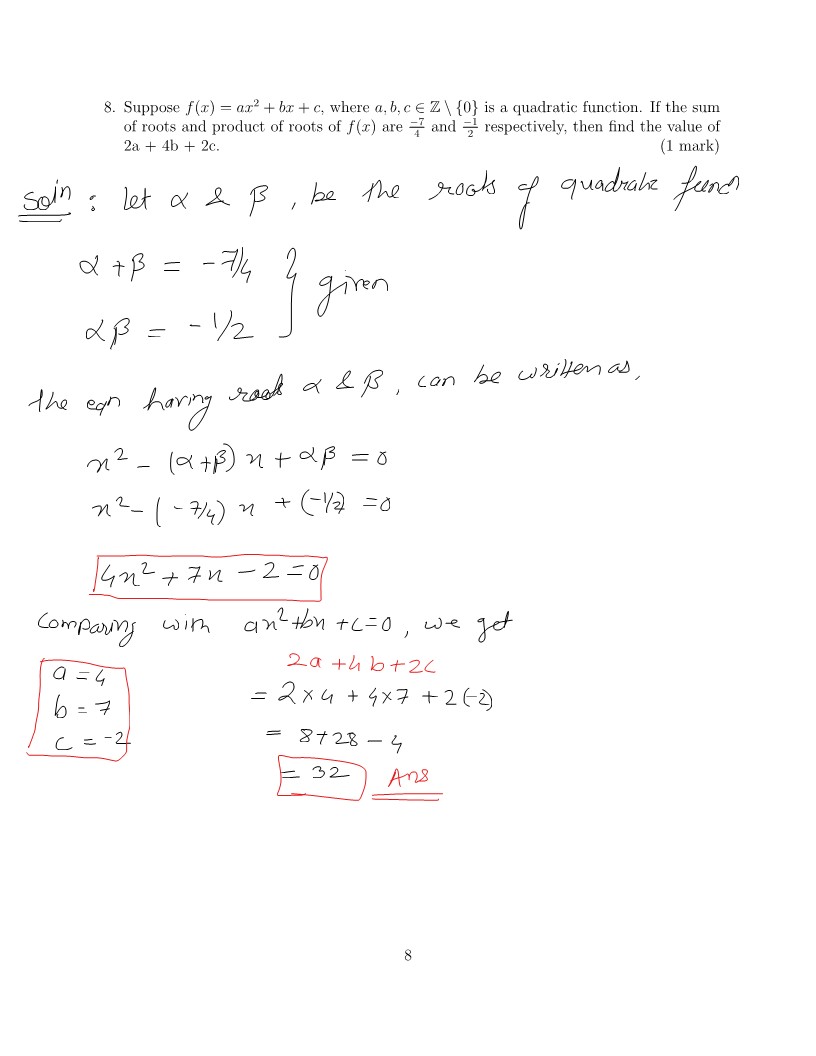 8. Suppose f(x) = ax² + bx + c, where a, b, c ∈ ℤ \ {0} is a quadratic function. If the sum
of roots and product of roots of f(x) are -7/4 and -1/2 respectively, then find the value of
2a + 4b + 2c. (1 mark)
Soln : let α & β , be the roots of quadratic funcn
α + β = - 7/4
αβ = - 1/2 } given
the eqn having roots α & β , can be written as,
x² - (α+β) x + αβ = 0
x² - (-7/4) x + (-1/2) = 0
4x² + 7x - 2 = 0
Comparing with ax²+bx+c=0, we get
a = 4
b = 7
c = -2
2a + 4b + 2c
= 2 × 4 + 4×7 + 2(-2)
= 8+28 - 4
= 32 Ans
8